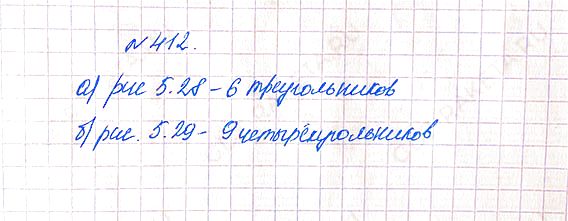 №412.
а) рис 5.28 - 6 треугольников
б) рис. 5.29 - 9 четырёхугольников